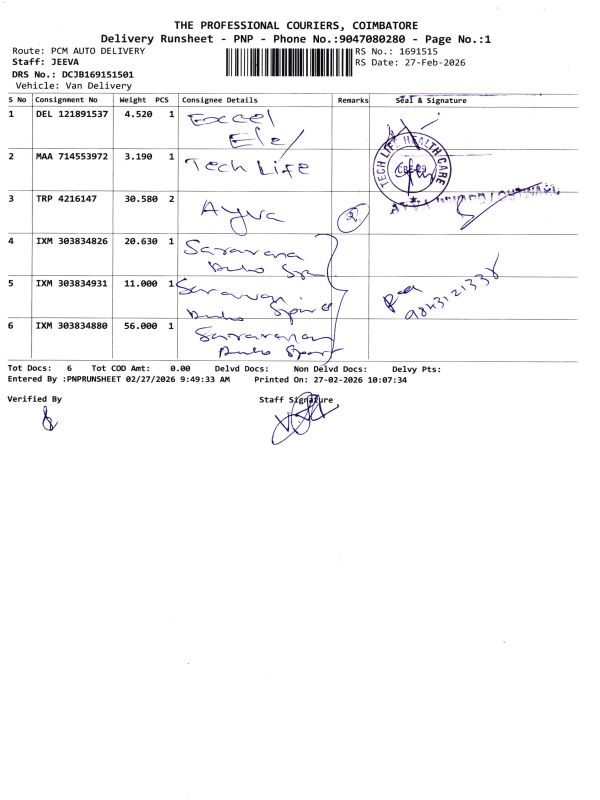 THE PROFESSIONAL COURIERS, COIMBATORE
Delivery Runsheet - PNP - Phone No.:9047080280 - Page No.:1
Route: PCM AUTO DELIVERY RS No.: 1691515
Staff: JEEVA RS Date: 27-Feb-2026
DRS No.: DCJB169151501
Vehicle: Van Delivery
S No Consignment No Weight PCS Consignee Details Remarks Seal & Signature
1 DEL 121891537 4.520 1 Excel
Ele/
2 MAA 714553972 3.190 1 Tech Life
TECH LIFE HEALTH CARE
3 TRP 4216147 30.580 2 Ayva 2
4 IXM 303834826 20.630 1 Saravana
5 IXM 303834931 11.000 1
6 IXM 303834880 56.000 1 Saravanan
Tot Docs: 6 Tot COD Amt: 0.00 Delvd Docs: Non Delvd Docs: Delvy Pts:
Entered By :PNPRUNSHEET 02/27/2026 9:49:33 AM Printed On: 27-02-2026 10:07:34
Verified By Staff Signature